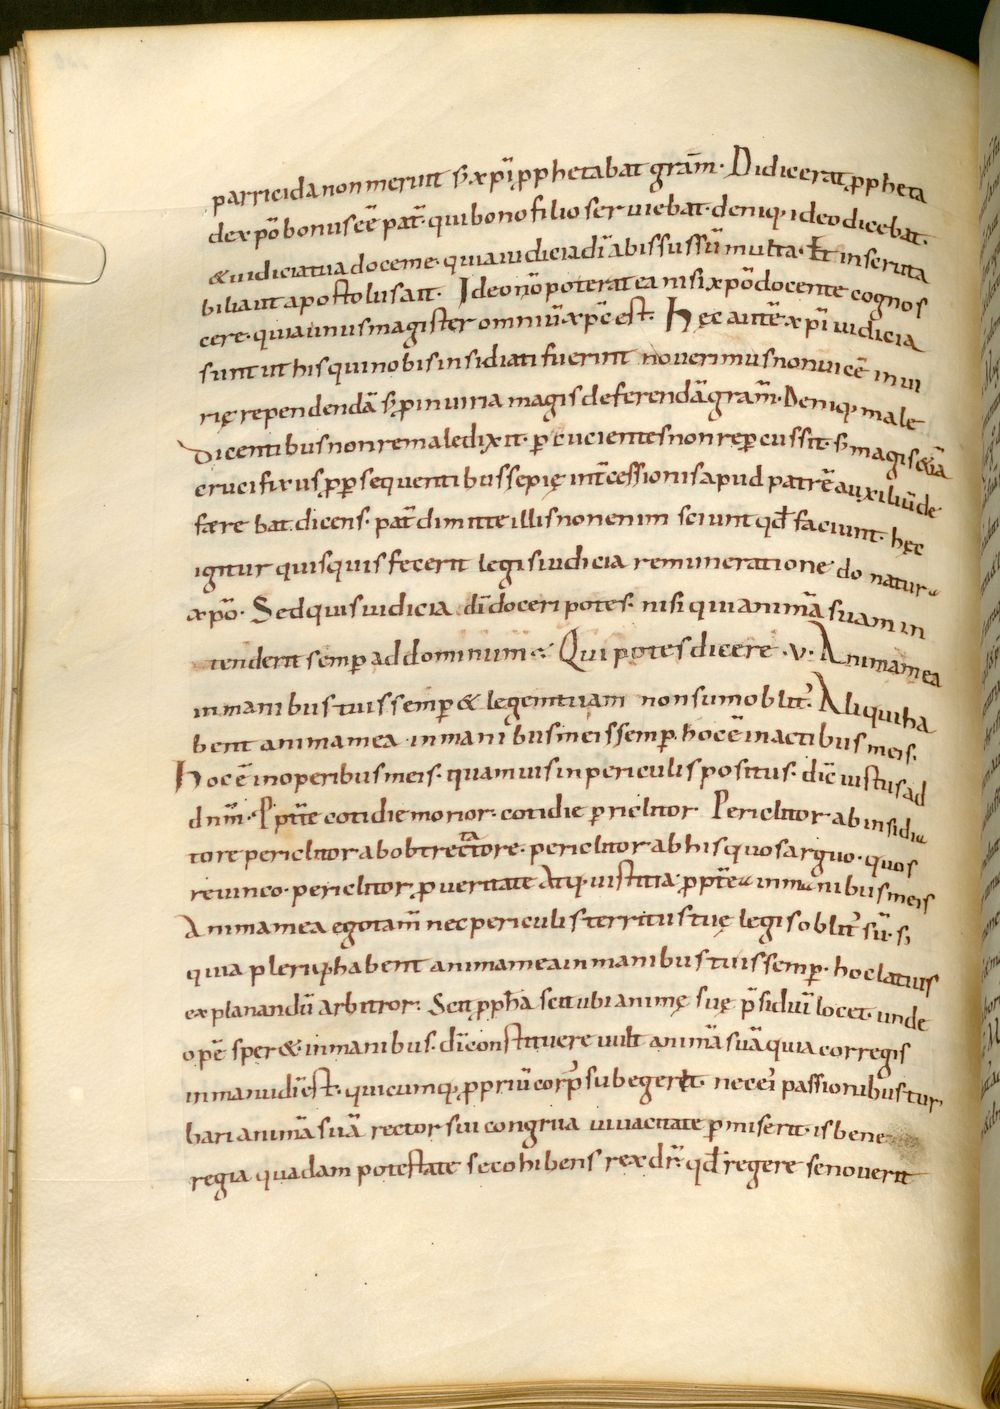 parricida non meruit s; xp̄i p̱phetabat grām· Didicerat p̱pheta
de xp̄o bonus eē pat̄· qui bono filio seruiebat· deniq; ideo dicebat·
& iudicia tua doce me· quia iudicia dī abissus sūt multa· Et inscruta
bilia ut apostolus ait· Ideo nō poterat ea nisi xp̄o docente cognos
cere· quia unus magister omniū xp̄c est· Hęc autē xp̄i iudicia
sunt ut his qui nobis insidiati fuerint nouerimus non uicē iniu
rię rependendā s; p̱ iniuria magis deferendā grām· Deniq; male
dicentibus non remaledixit· p̱cucientes non rep̱cussit· s; magis &iā
crucifixus p̱ p̱sequentibus sepię int̄cessionis apud patrē auxiliū de
færebat dicens· pat̄ dimitte illis non enim sciunt qđ faciunt· hęc
igitur quisquis fecerit legis iudicia remuneratione donatur a
xp̄o· Sed quis iudicia dī doceri potes· nisi qui animā suam in
tenderit semp̱ ad dominum·: Qui potes dicere ·v· Anima mea
in manibus tuis semp̱ & legem tuam non sum oblit᾽· Aliqui ha
bent anima mea in manibus meis semp̱· hoc ē in actibus meis·
Hoc ē in operibus meis· quamuis in periculis positus· dic̄ iustus ad
dn̄m· P̱pt̄e cotidie morior· cotidie p̱riclitor Periclitor ab insidia
tore periclitor ab obtrectatore· periclitor ab his quos arguo· quos
reuinco· periclitor p̱ ueritate Atq; iustitia· p̱pt̄ea in manibus meis
Anima mea ego tam̄ nec periculis territus tuę legis oblit᾽ sū· s;
quia pleriq; habent anima mea in manibus tuis semp̱· hoc latius
explanandū arbitror· Scit p̱ph̄a scit ubi animę suę p̄sidiū locet· unde
opē sper&· in manibus· dī constituere uult animā suā quia cor regis
in manu dī est· quicumq; p̱priū corp᾽ subegerit· nec eī passionibus tur
bari animā suā rector sui congrua uiuacitate p̱miserit· is bene
regia quadam potestate se cohibens rex dr̄· qđ regere se nouerit